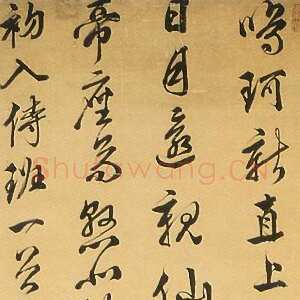 鳴珂新直上
日月邇親仙
帝座
初入侍班一
Shufawang.CN